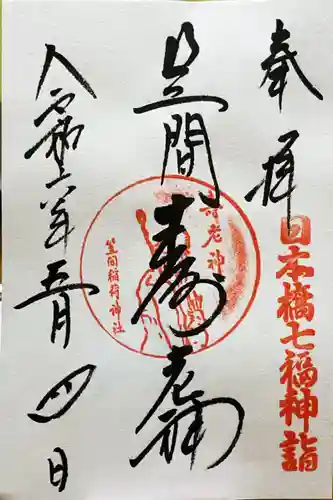 奉拝
日本橋七福神詣
笠間
寿老神
寿老神
笠間稲荷神社
令和六年五月四日